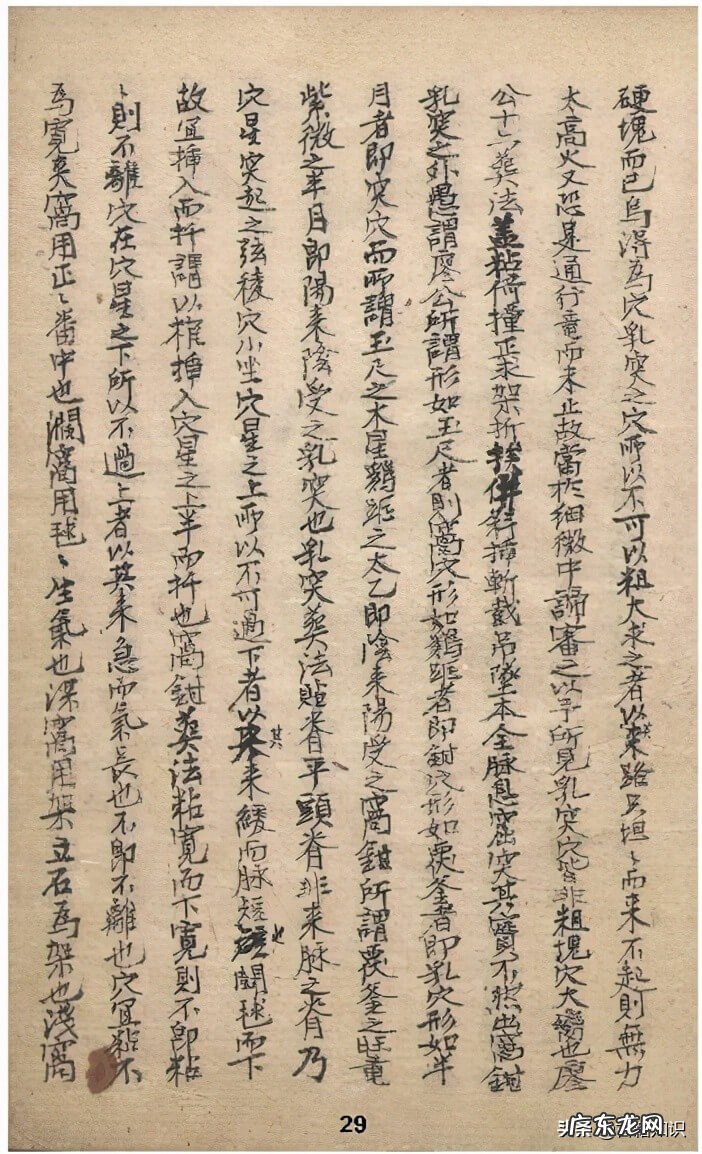 硬塊而已烏得為穴乳突之穴所以不可以粗大求之者以其來路只坦〻而來不起則無力
太高大又恐是通行竟而未止故當於細微中諦審之以予所見乳突穴皆非粗塊穴大窩也廖
公十六葬法盖粘倚撞正求架折挨併斜插斬截吊墜本全脉息窟突其實不然出窩鉗
乳突之外愚謂廖公所謂形如玉尺者則窩穴形如鷄距者即鉗穴形如覆釜者即乳穴形如半
月者即突穴而所謂玉尺之木星鷄距之太乙即陰來陽受之窩鉗所謂覆釜之旺龍
紫微之半月即陽來陰受之乳突也乳突葬法貼脊平頭脊非來脉之脊乃
穴星突起之弦稜穴小坐穴星之上所以不可過下者以其來緩而脉短也鬪毬而下
故宜插入而扦謂以權插入穴星之上半而扦也窩鉗葬法粘寬而下寬則不即粘
〻則不離穴在穴星之下所以不過上者以其來急而氣長也不即不離也穴宜粘不
為寬矣窩用正〻番中也濶窩用毬〻生氣也深窩用架立石為架也淺窩
29
头条 知识
广东龙网